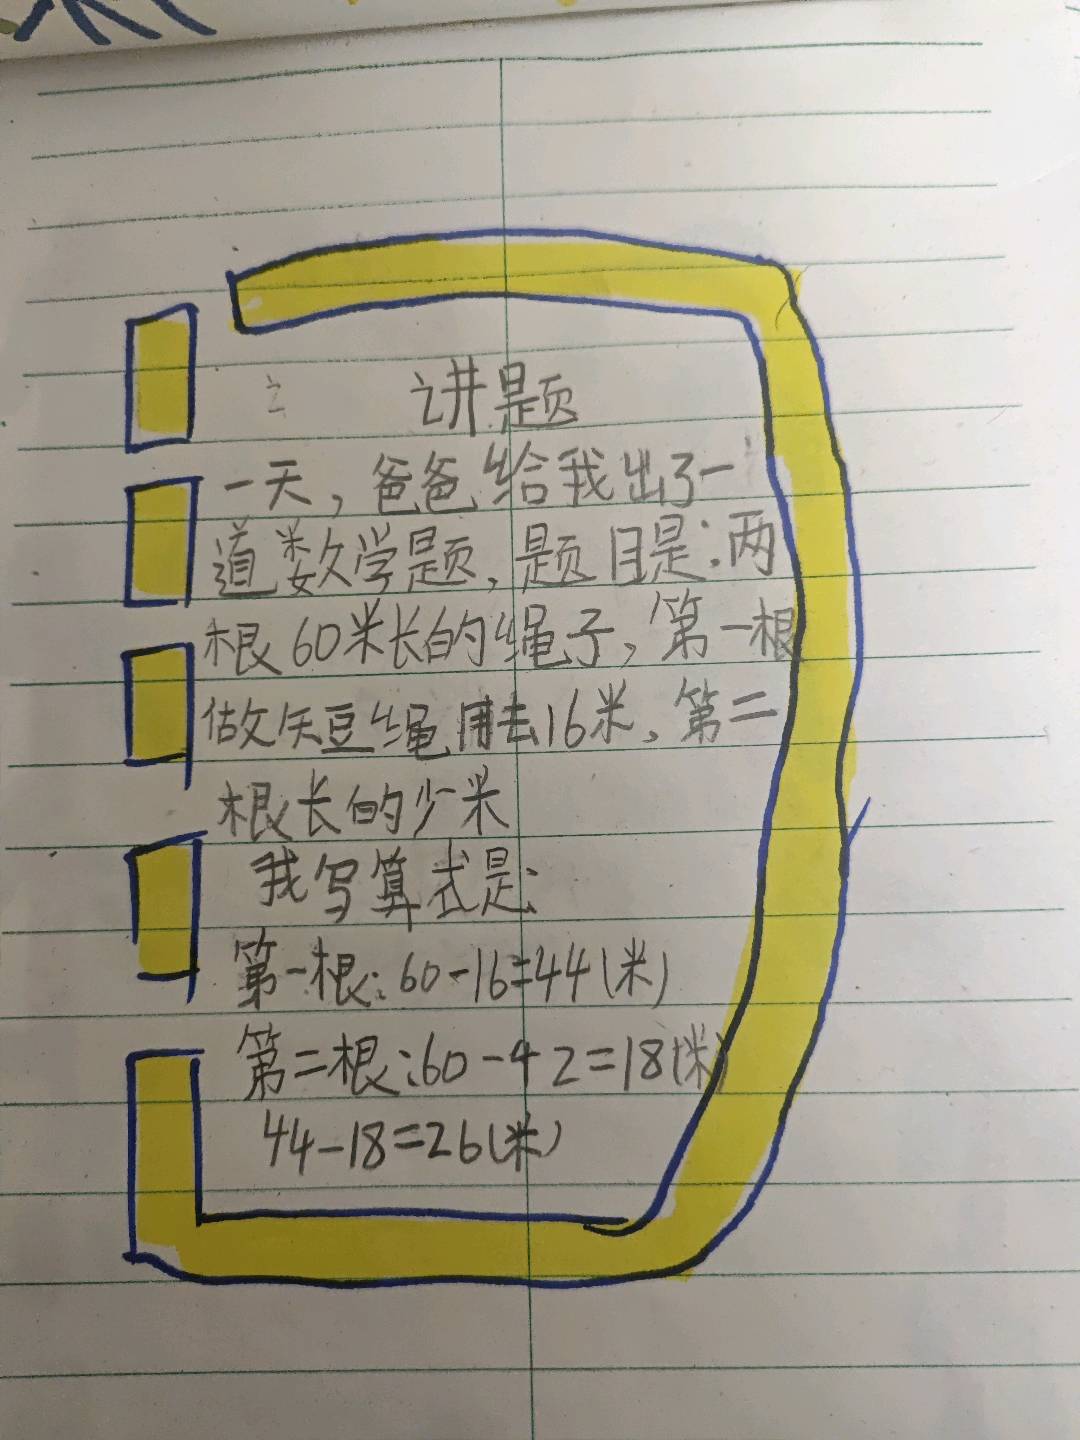 讲题
一天，爸爸给我出了一
道数学题，题目是：两
根60米长的绳子，第一根
做矢豆绳用去16米、第二
根长的少米
我写算式是：
第一根：60-16=44(米)
第二根：60-42=18(米)
44-18=26(米)